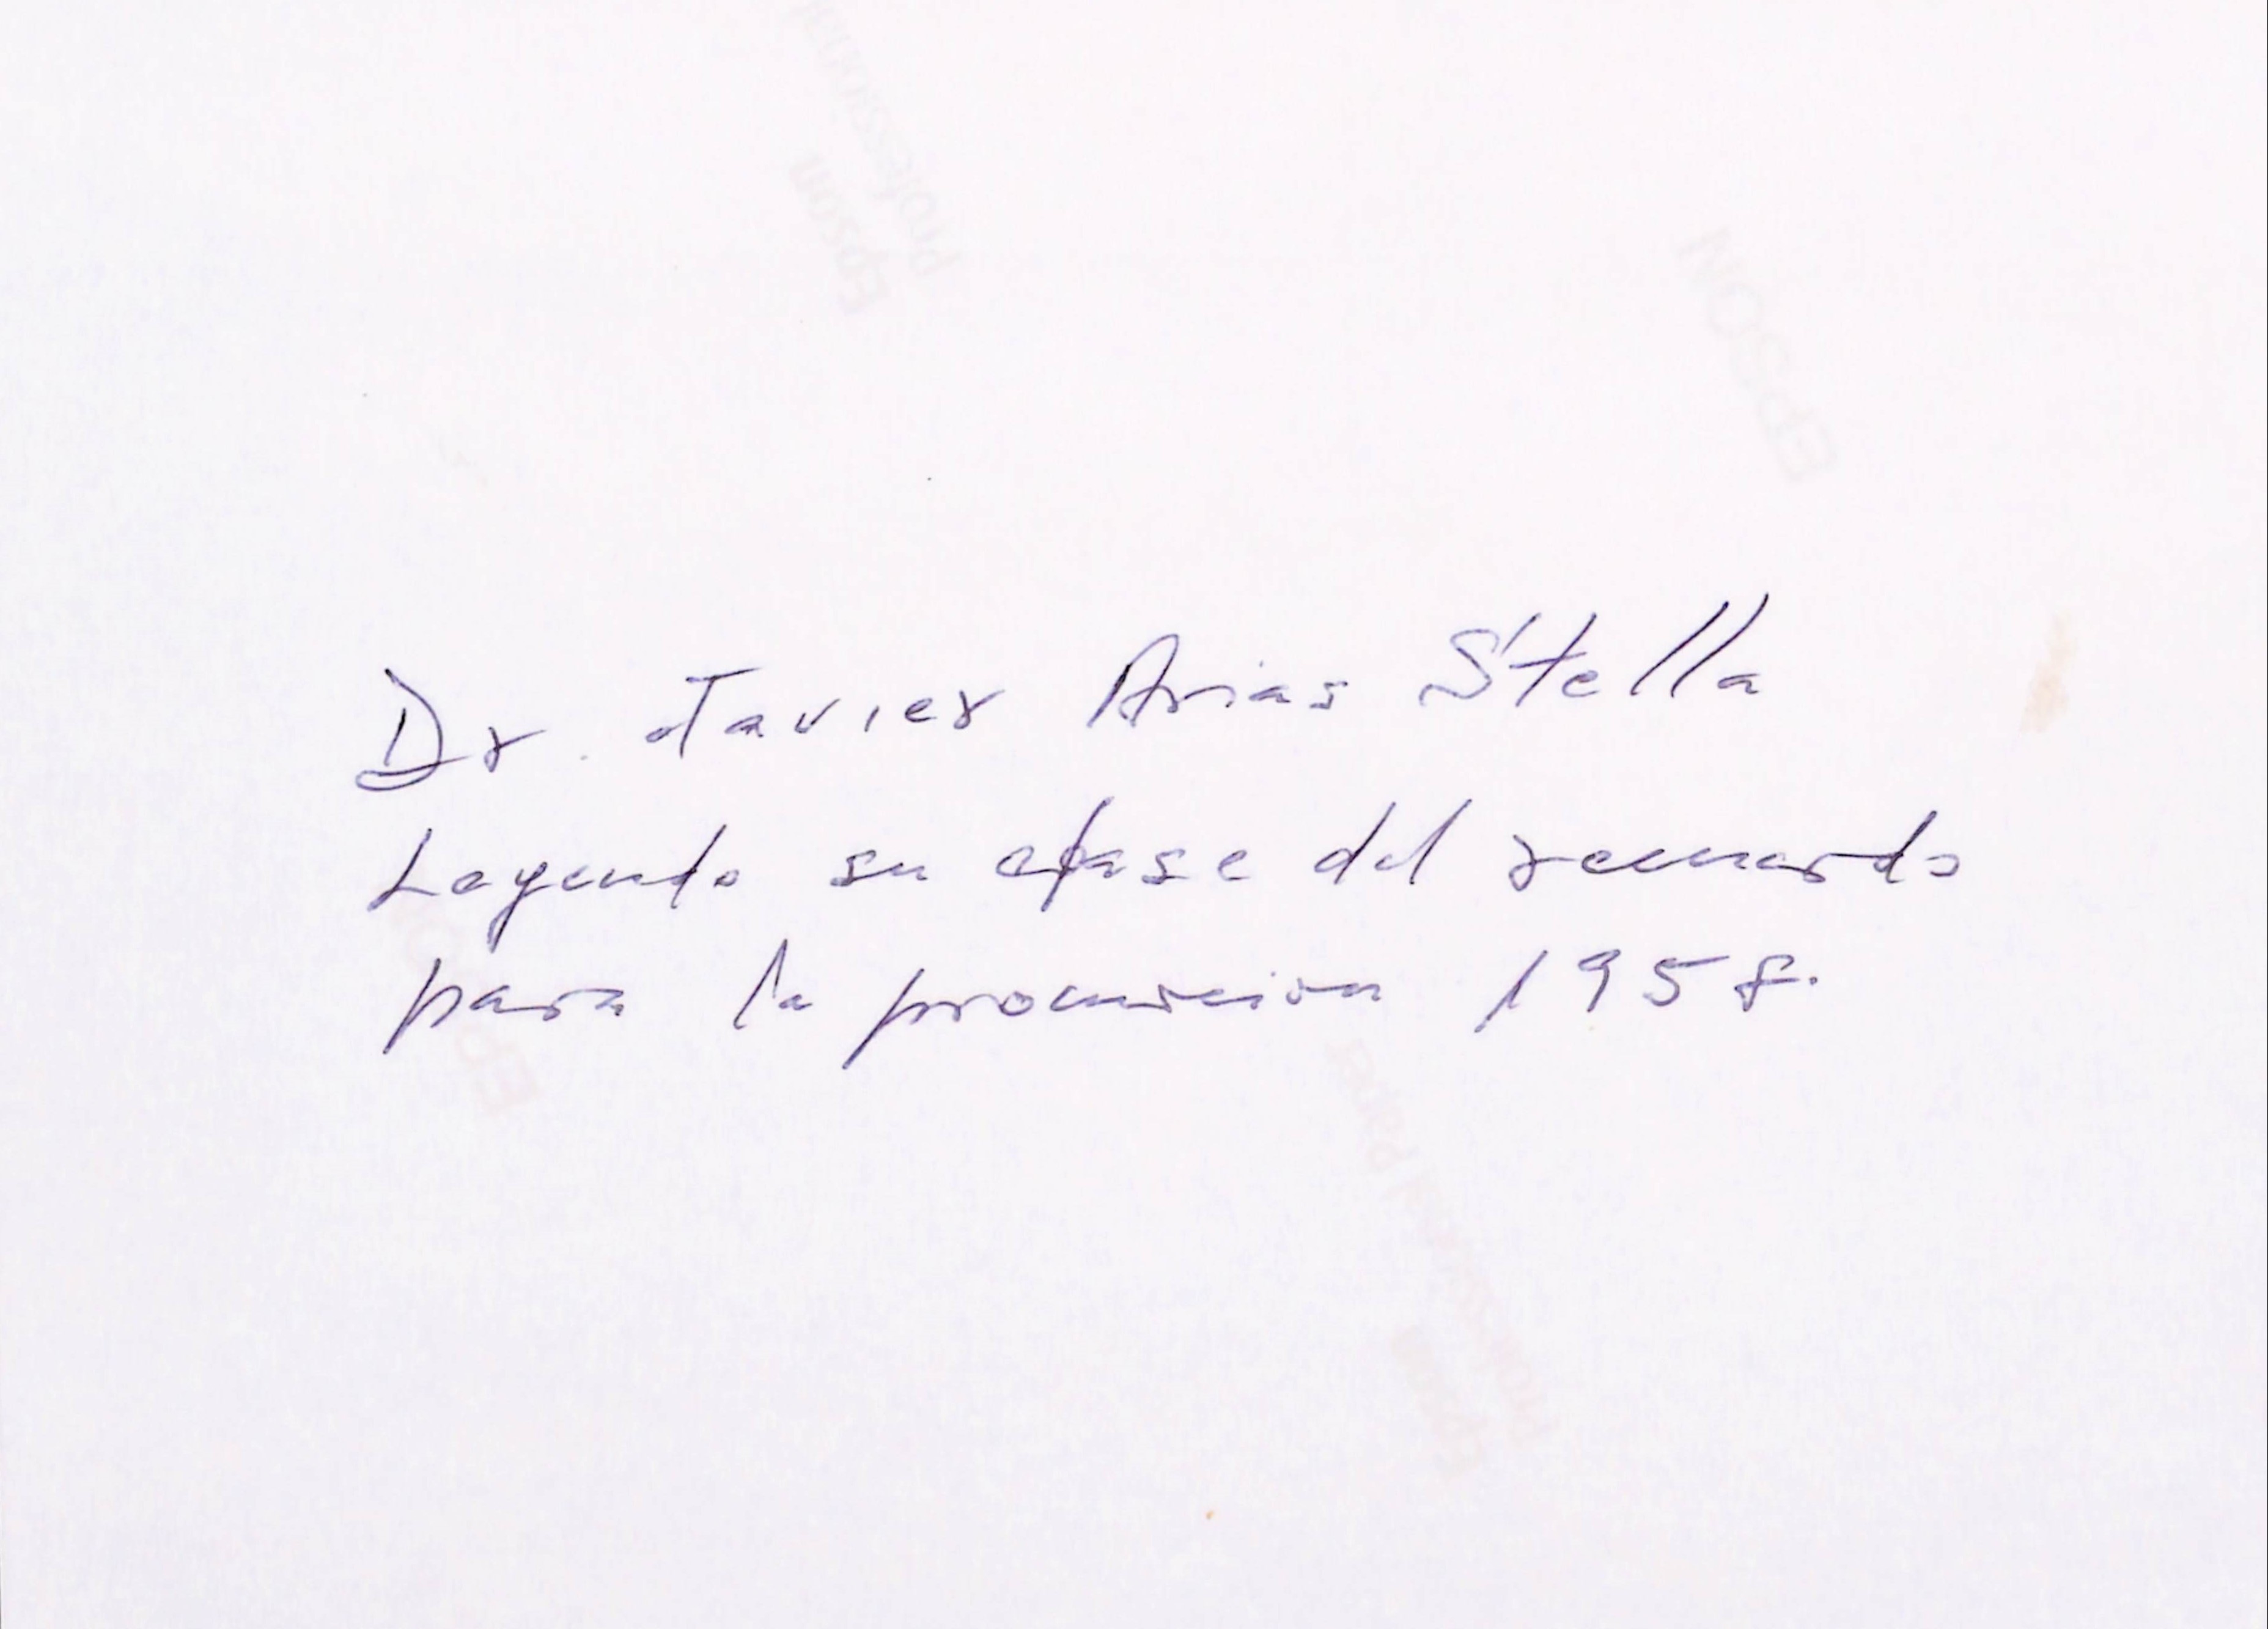 Dr. Javier Arias Stella
Leyendo su clase del recuerdo
para la promocion 1958.
Professional
Epsom
EPSON
EPSON
Professional Paper
Epsom